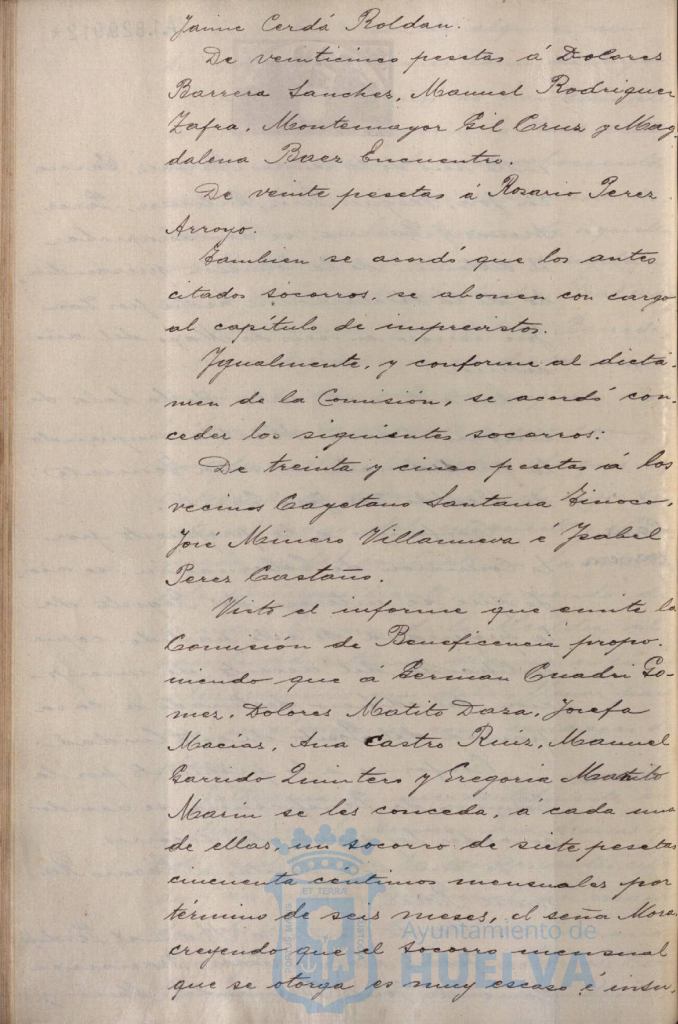 Jaime Cerdá Roldan.
De veinticinco pesetas á Dolores
Barrera Sanchez, Manuel Rodriguez
Zafra, Montemayor Gil Cruz y Mag-
dalena Baez Encuentro.
De veinte pesetas á Rosario Perez
Arroyo.
Tambien se acordó que los antes
citados socorros, se abonen con cargo
al capítulo de imprevistos.
Igualmente, y conforme al dictá-
men de la Comisión, se acordó con-
ceder los siguientes socorros:
De treinta y cinco pesetas á los
vecinos Cayetano Santana Tinoco,
José Minero Villanueva é Isabel
Perez Castaño.
Visto el informe que emite la
Comisión de Beneficencia propo-
niendo que á German Cuadri Go-
mez, Dolores Matito Daza, Josefa
Macías, Ana Castro Ruiz, Manuel
Garrido Quintero y Gregoria Matito
Marin se les conceda, á cada una
de ellas, un socorro de siete pesetas
cincuenta céntimos mensuales por
término de seis meses, el señor Mora
creyendo que el socorro mensual
que se otorga es muy escaso é insu-
Ayuntamiento de
HUELVA